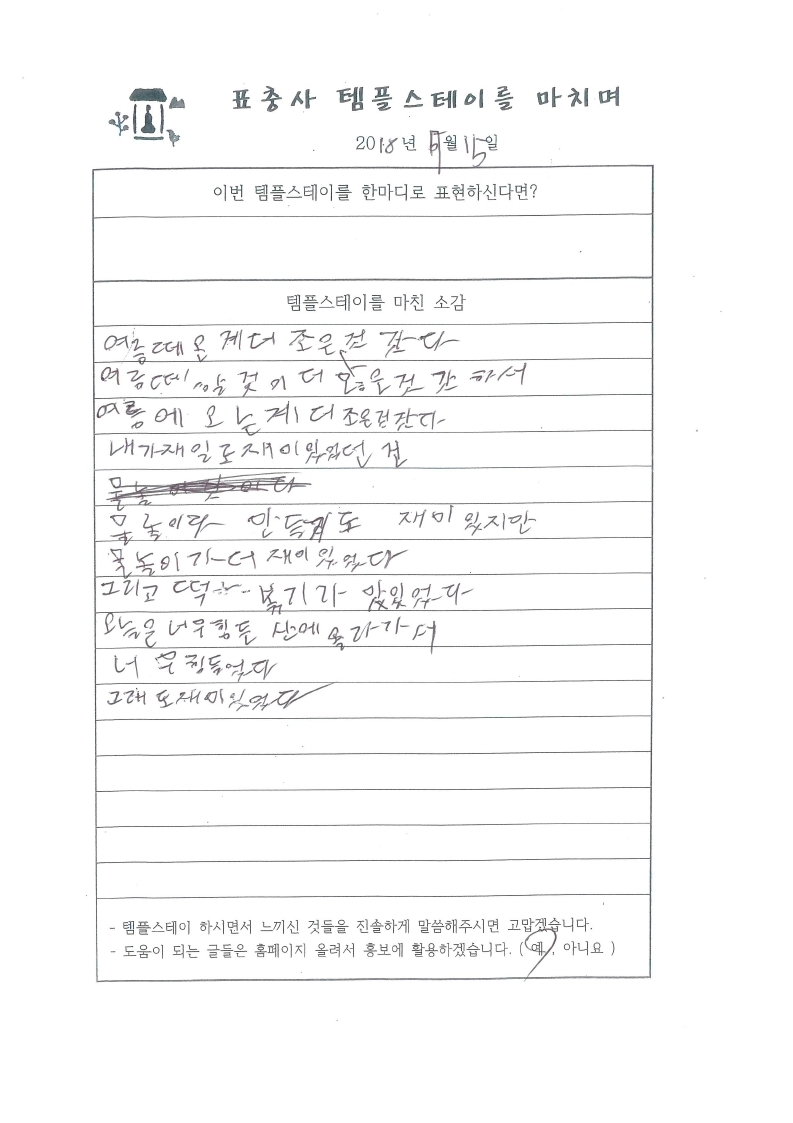 표충사 템플스테이를 마치며
2018년 월 15일
이번 템플스테이를 한마디로 표현하신다면?
템플스테이를 마친 소감
여름때온 게더 조은것 같다
여름때 할 것이 더 많은것 갓 하서
여름에 오는게 더 조은건 갓다
내가 재일로 재미있었던 건
물놀이 만들기도 재미 있지만
물놀이가 더 재미있었다
그리고 떡 볶기가 맜있었다
오늘은 너무 힘든 산에 올라가서
너무 힘들었다
그래도 재미있었다
- 템플스테이 하시면서 느끼신 것들을 진솔하게 말씀해주시면 고맙겠습니다.
- 도움이 되는 글들은 홈페이지 올려서 홍보에 활용하겠습니다. ( 예 , 아니요 )